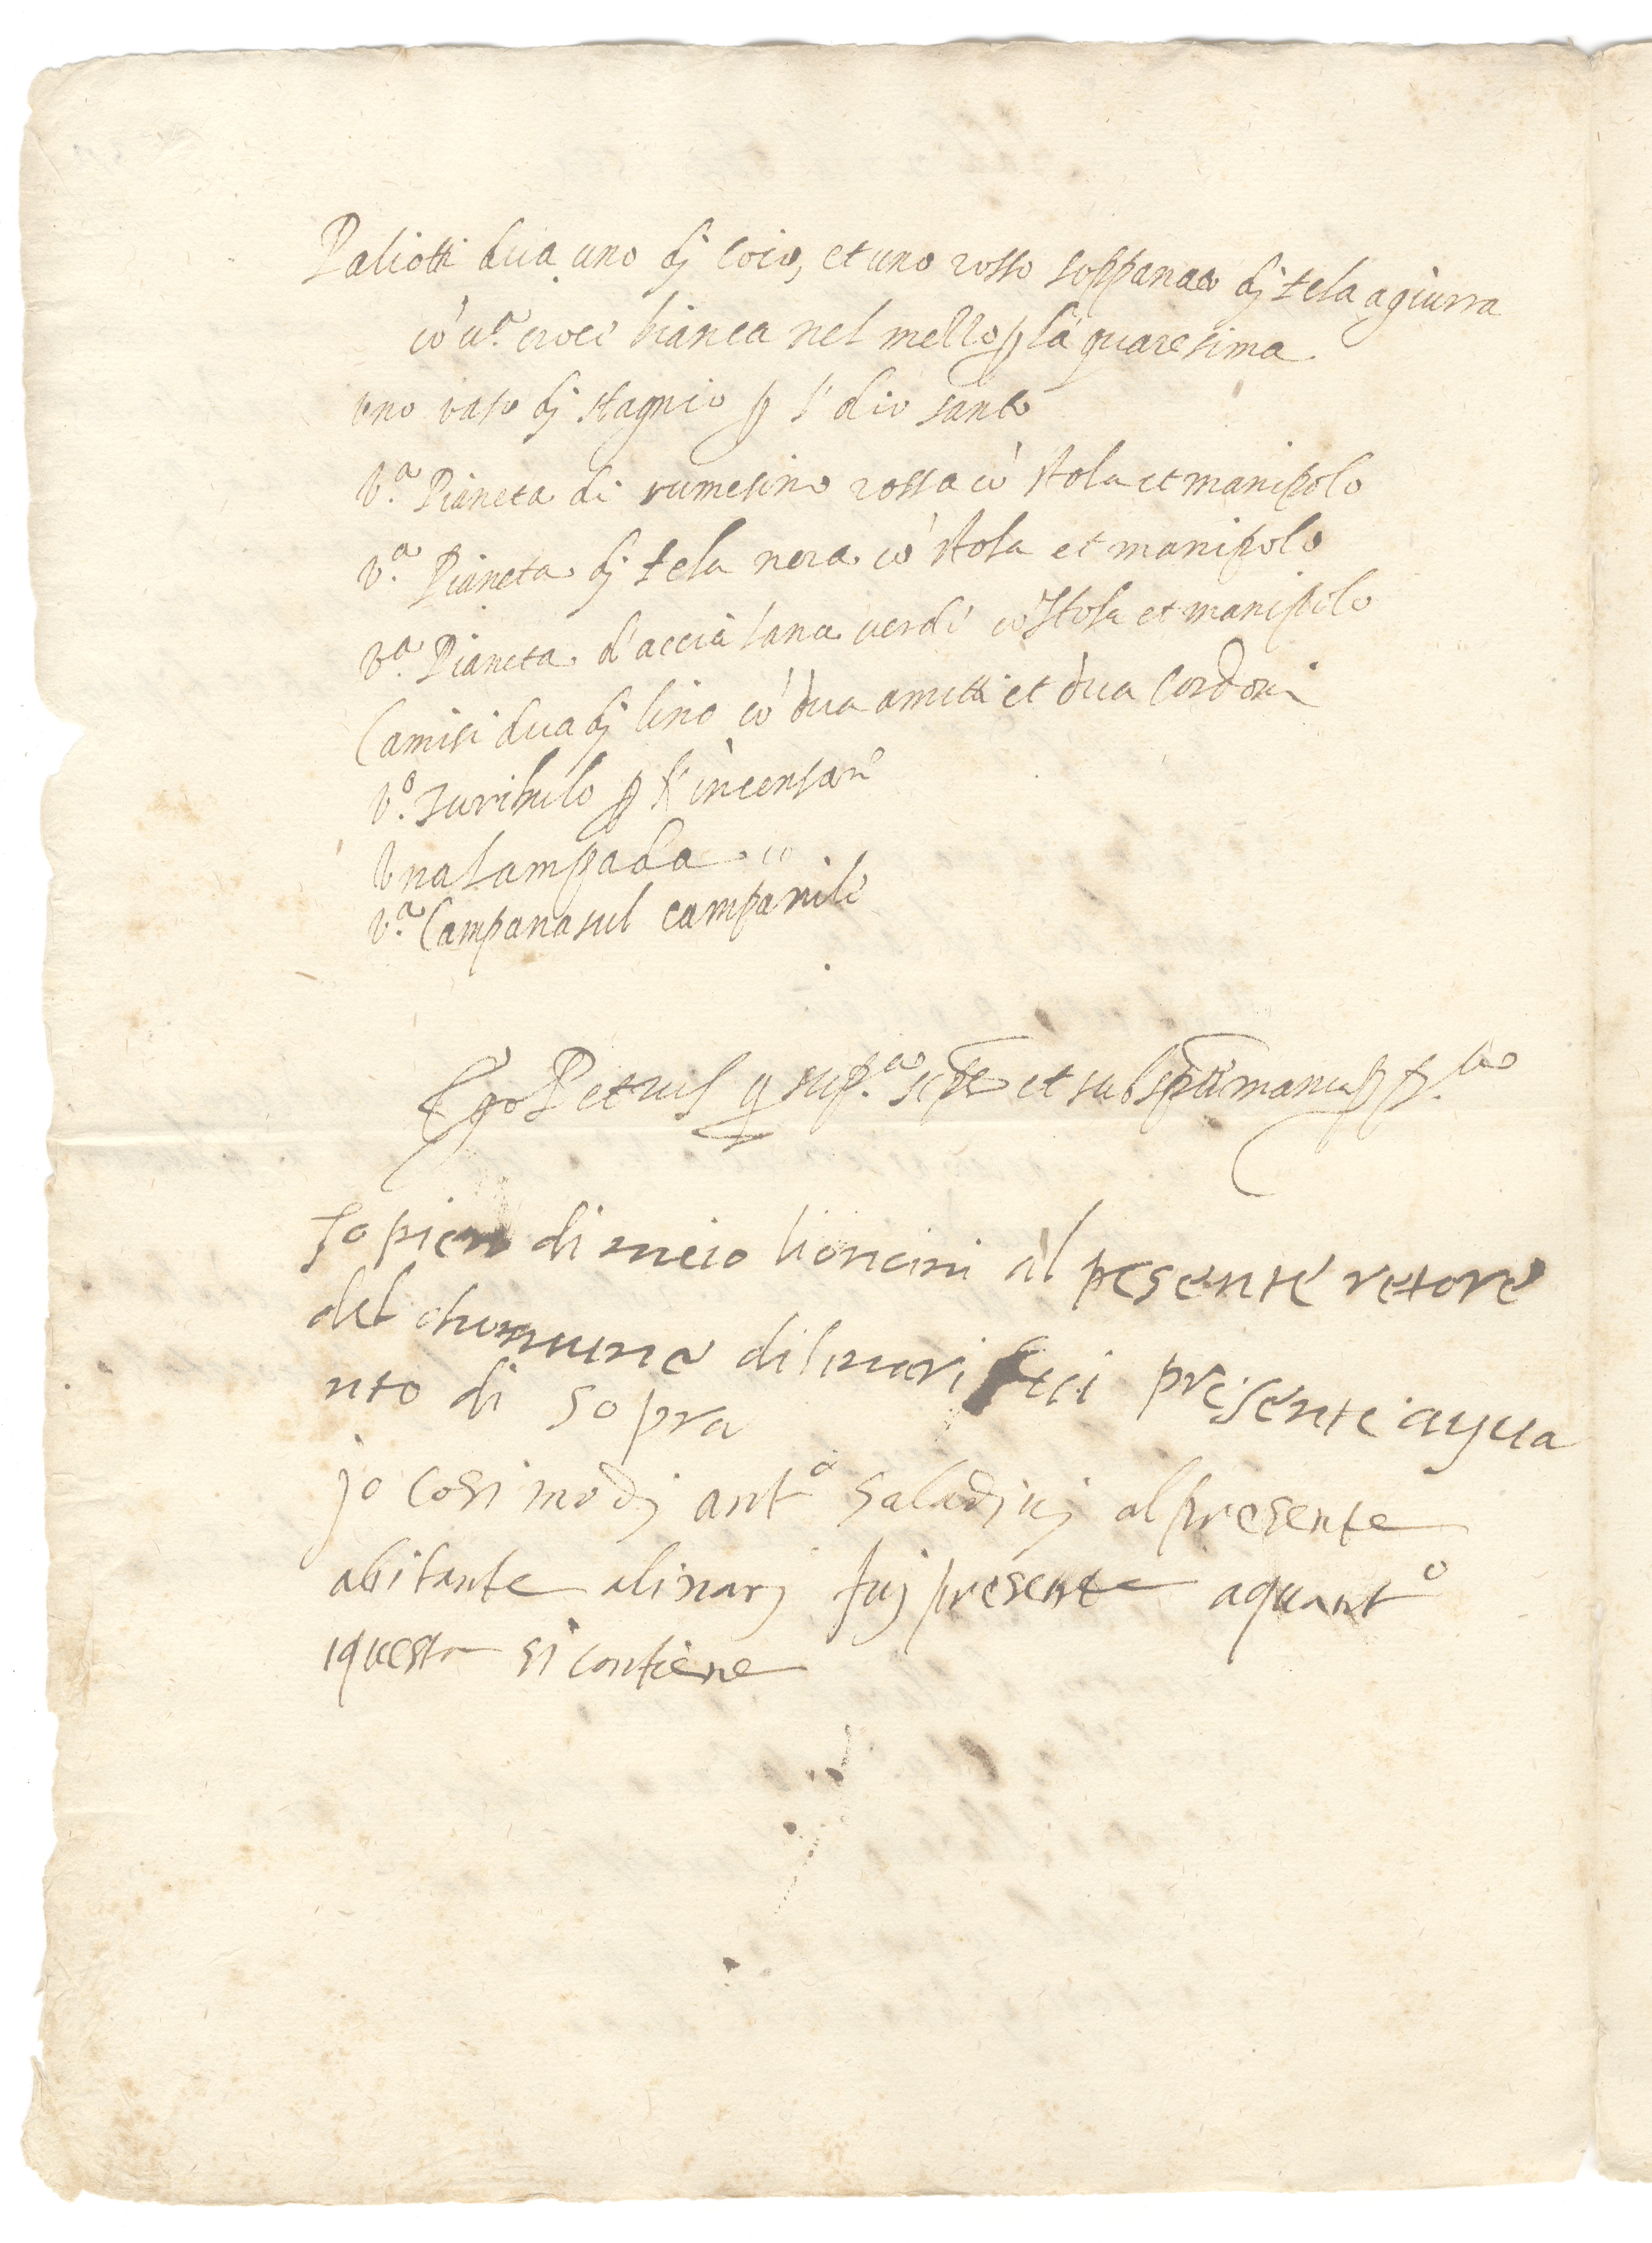 Paliotti dua uno dj coio, et uno rosso soppanato dj tela agiurra
cò u.ª croce bianca nel mezzo p la quaresima
Uno vaso dj stagnio p l'olio santo
V.ª Pianeta di rumesino rossa cò stola et manipolo
V.ª Pianeta dj tela nera cò stola et manipolo
V.ª Pianeta d'accia lana verde cò stola et manipolo
Camisi dua dj lino cò dua amitti et dua cordoni
V.º Turibulo p l'incensare
Una lampada
V.ª Campana sul campanile
Ego Petrus q sup.ª scpsi et subscpsi manu pp.ª
Io piero di meio lioncini al presente retore
del chomune di linari fui presente a qua
nto di sopra
jo Cosimo dj ant.º Saladinj al presente
abitante a linarj fuj presente a quant.º
i questa si contiene